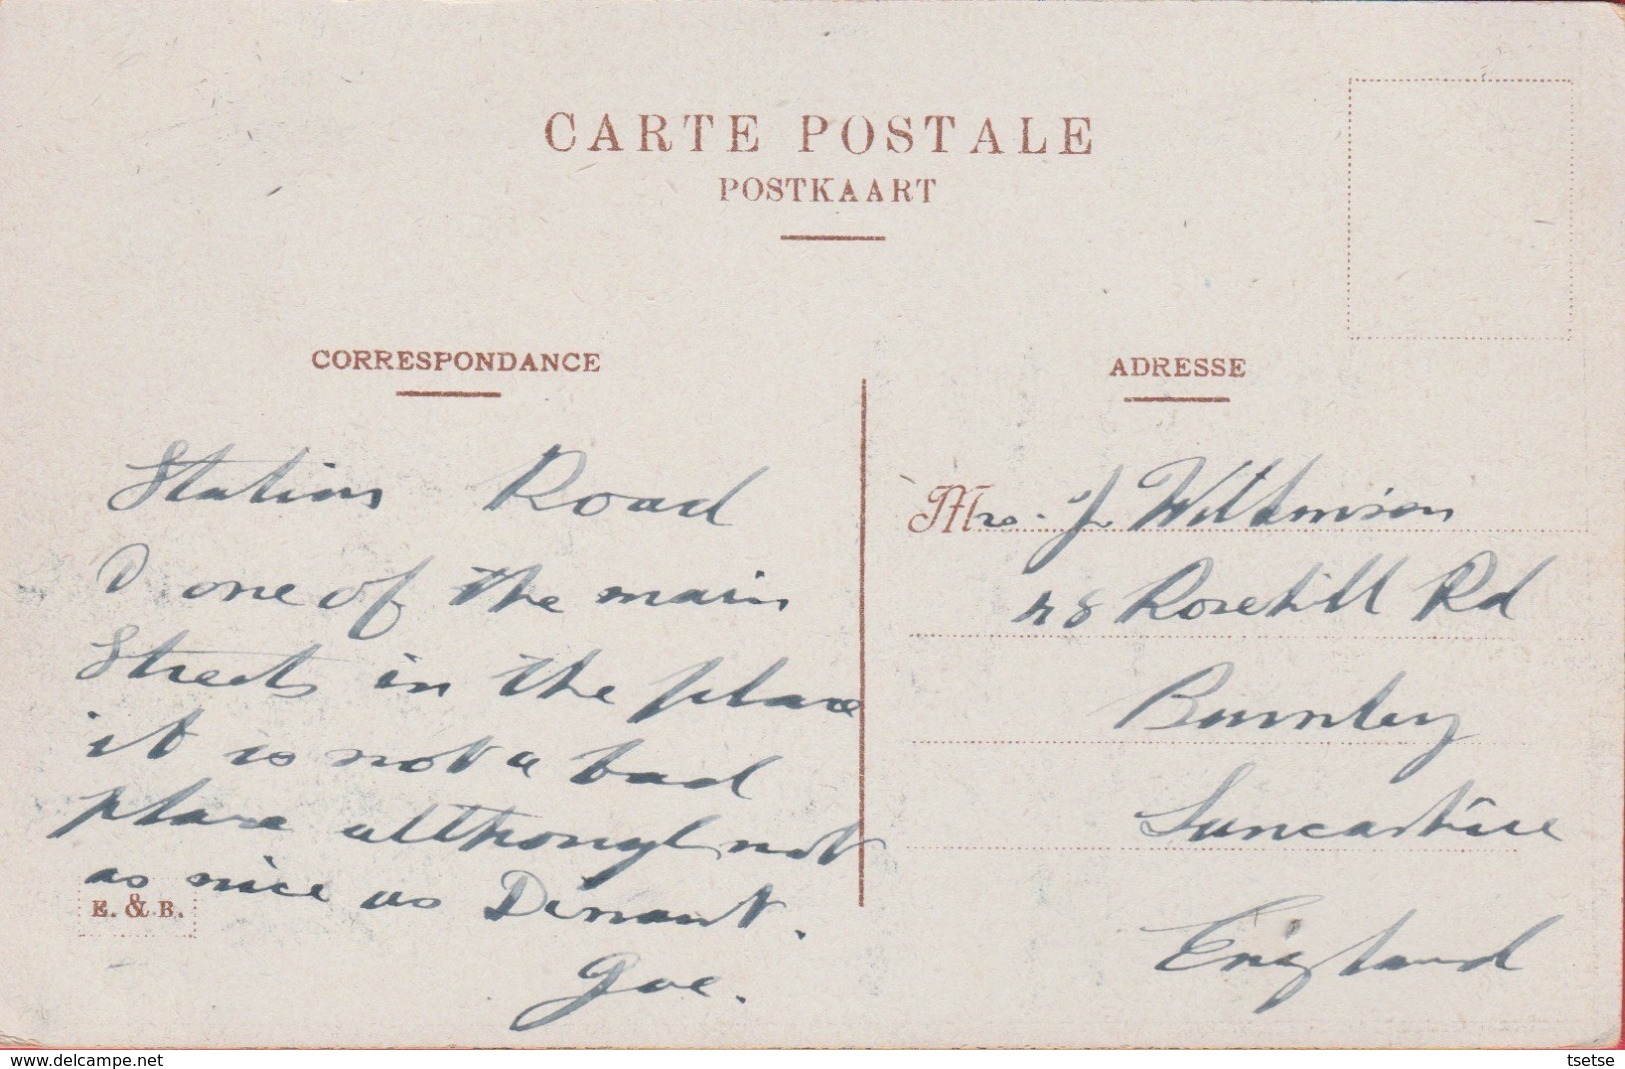 CARTE POSTALE
POSTKAART
CORRESPONDANCE
Station Road
one of the main
Streets in the place
it is not a bad
place although not
as nice as Dinant.
Joe.
E. & B.
ADRESSE
Mrs. J Wilkinson
48 Rosehill Rd
Burnley
Lancashire
England
www.delcampe.net
tsetse